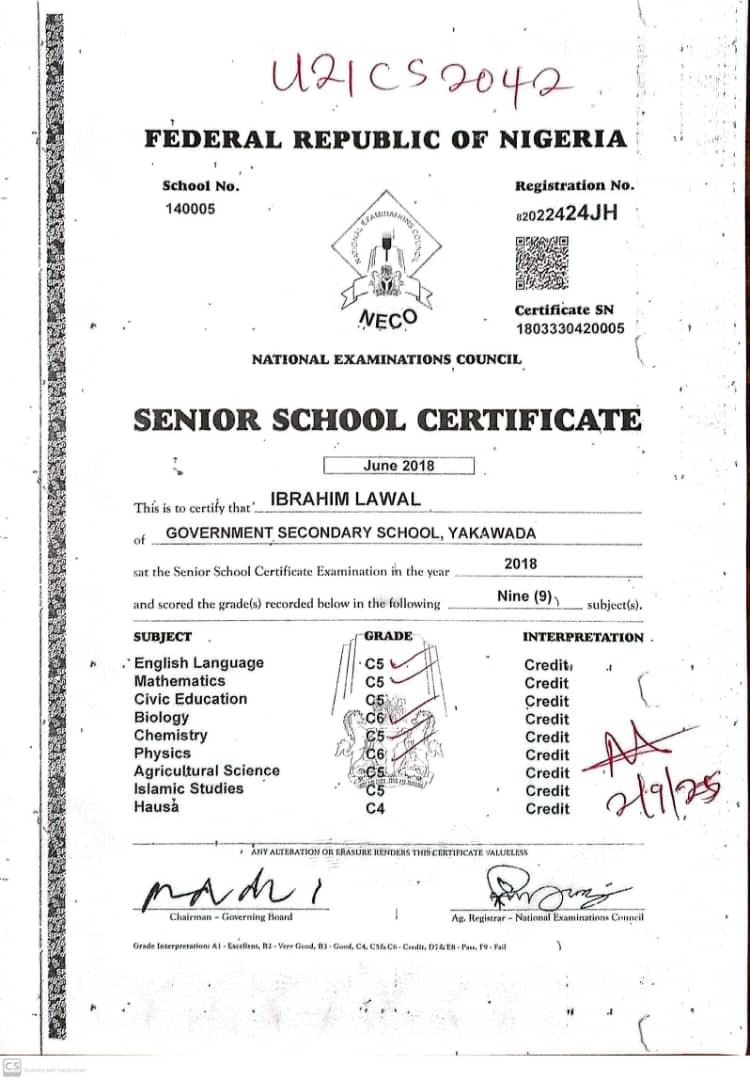 U21CS2042
FEDERAL REPUBLIC OF NIGERIA
School No.
140005
Registration No.
82022424JH
NATIONAL EXAMINATIONS COUNCIL
NECO
Certificate SN
1803330420005
NATIONAL EXAMINATIONS COUNCIL
SENIOR SCHOOL CERTIFICATE
June 2018
This is to certify that IBRAHIM LAWAL
of GOVERNMENT SECONDARY SCHOOL, YAKAWADA
sat the Senior School Certificate Examination in the year 2018
and scored the grade(s) recorded below in the following Nine (9) subject(s).
SUBJECT GRADE INTERPRETATION
English Language C5 Credit
Mathematics C5 Credit
Civic Education C5 Credit
Biology C6 Credit
Chemistry C5 Credit
Physics C6 Credit
Agricultural Science C5 Credit
Islamic Studies C5 Credit
Hausa C4 Credit
2/9/25
ANY ALTERATION OR ERASURE RENDERS THIS CERTIFICATE VALUELESS
Chairman – Governing Board
Ag. Registrar – National Examinations Council
Grade Interpretation: A1 - Excellent, B2 - Very Good, B3 - Good, C4, C5 & C6 - Credit, D7 & E8 - Pass, F9 - Fail
CS Scanned with CamScanner